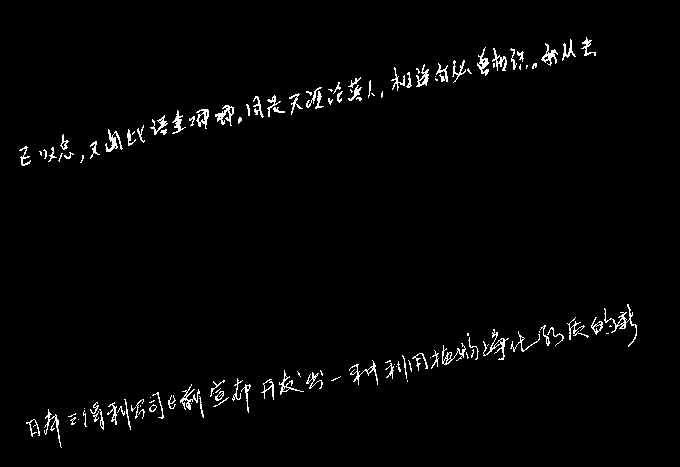 已叹息，又闻此语重唧唧。同是天涯沦落人，相逢何必曾相识。我从去
日本三得利公司日前宣布开发出一种利用植物净化水质的新